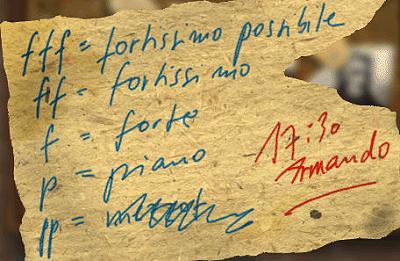 fff = fortissimo possibile
ff = fortissimo
f = forte
p = piano
pp =
17:30
Armando